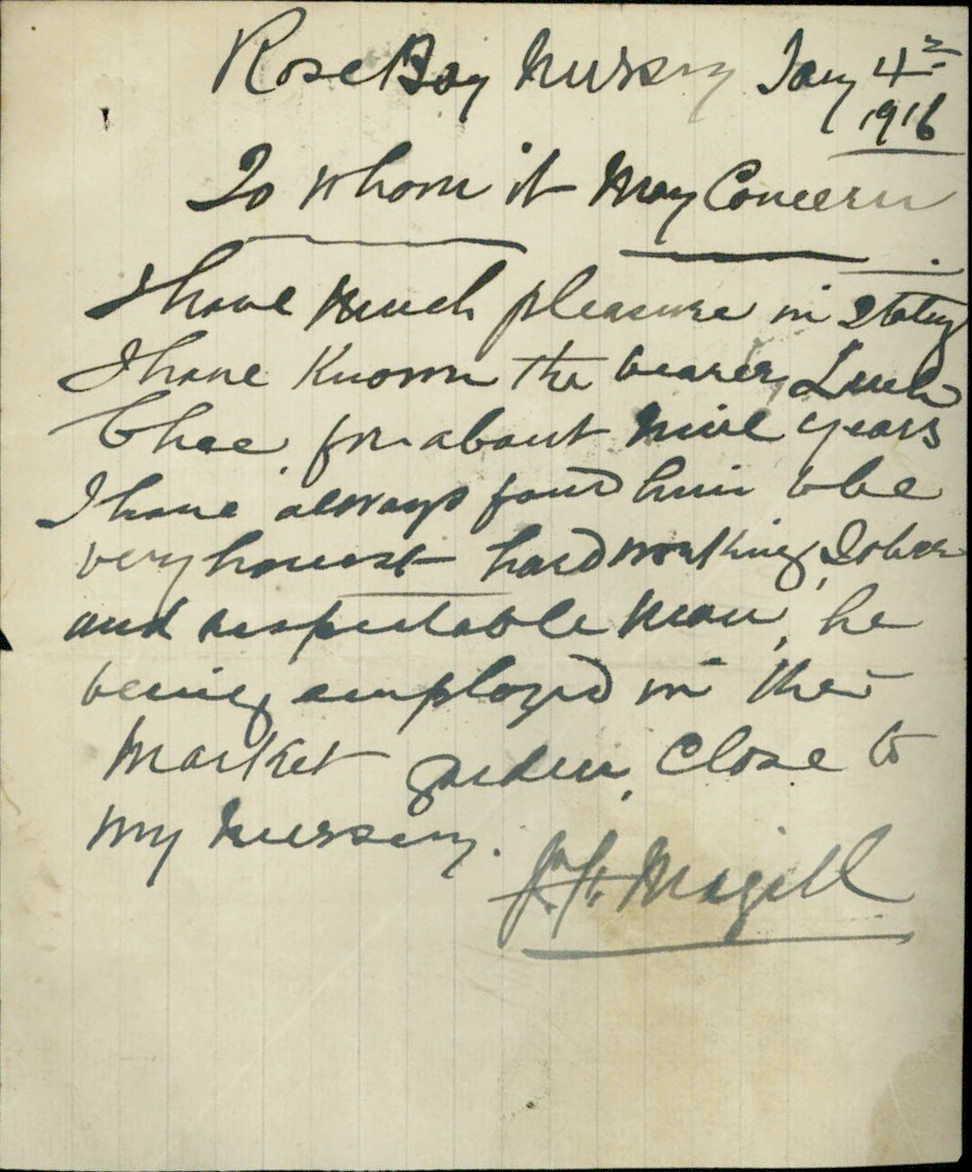 Rose Bay Nursery Jany 4th
1916
To whom it May Concern
I have Much pleasure in Stating
I have Known the bearer
Chee for about Nine years
I have always found him to be
very honest hardworking, Sober
and respectable Man, he
being employed in the
Market garden, Close to
My Nursery.
Magill